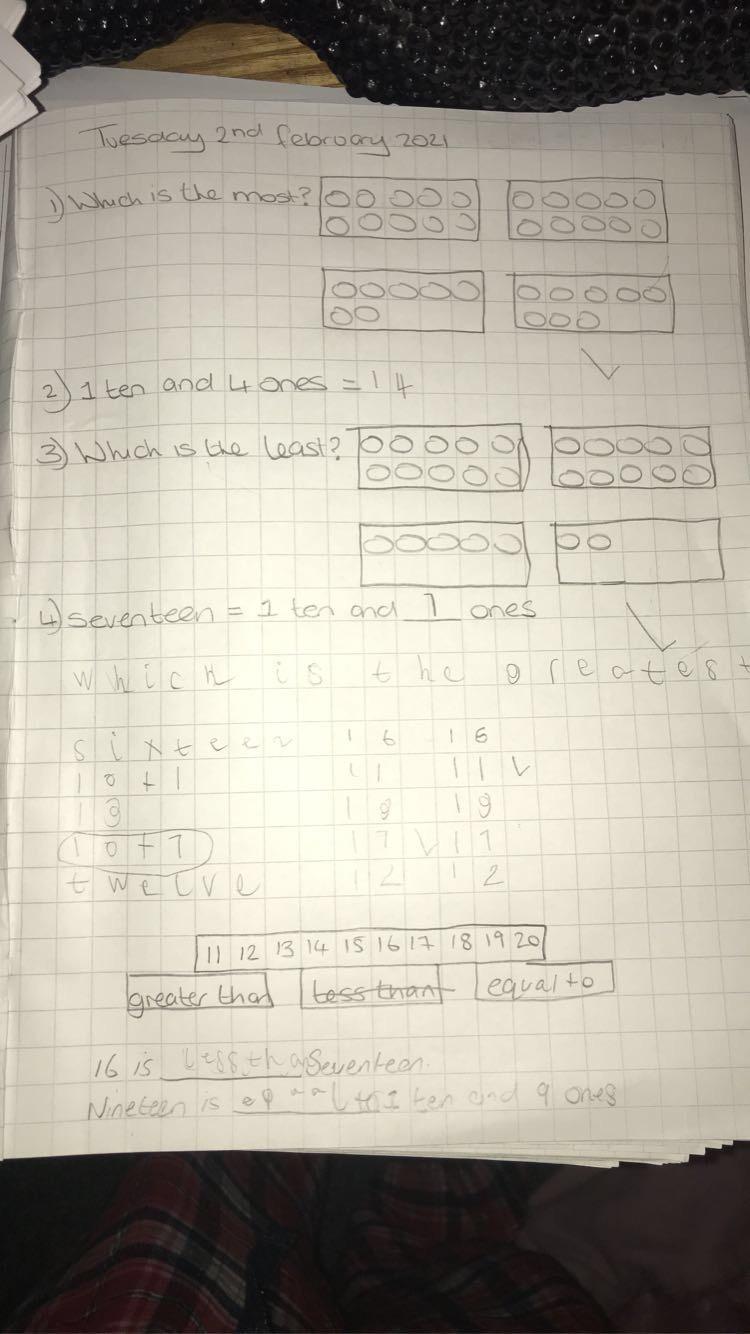 Tuesday 2nd february 2021
1) Which is the most?
2) 1 ten and 4 ones = 14
3) Which is the least?
4) seventeen = 1 ten and 7 ones
which is the greatest
sixteen 16 16
10+1 11 11
19 19 19
10+7 17 17
twelve 12 12
11 12 13 14 15 16 17 18 19 20
greater than less than equal to
16 is less than Seventeen.
Nineteen is equal to 1 ten and 9 ones